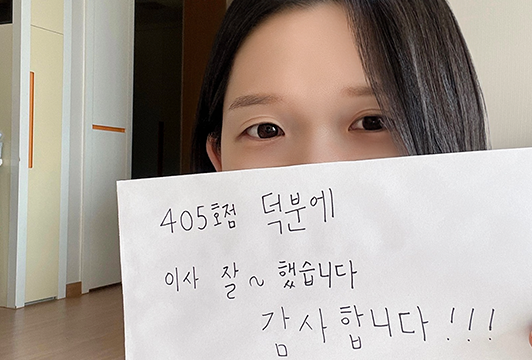 405호점 덕분에
이사 잘~ 했습니다
감사합니다!!!